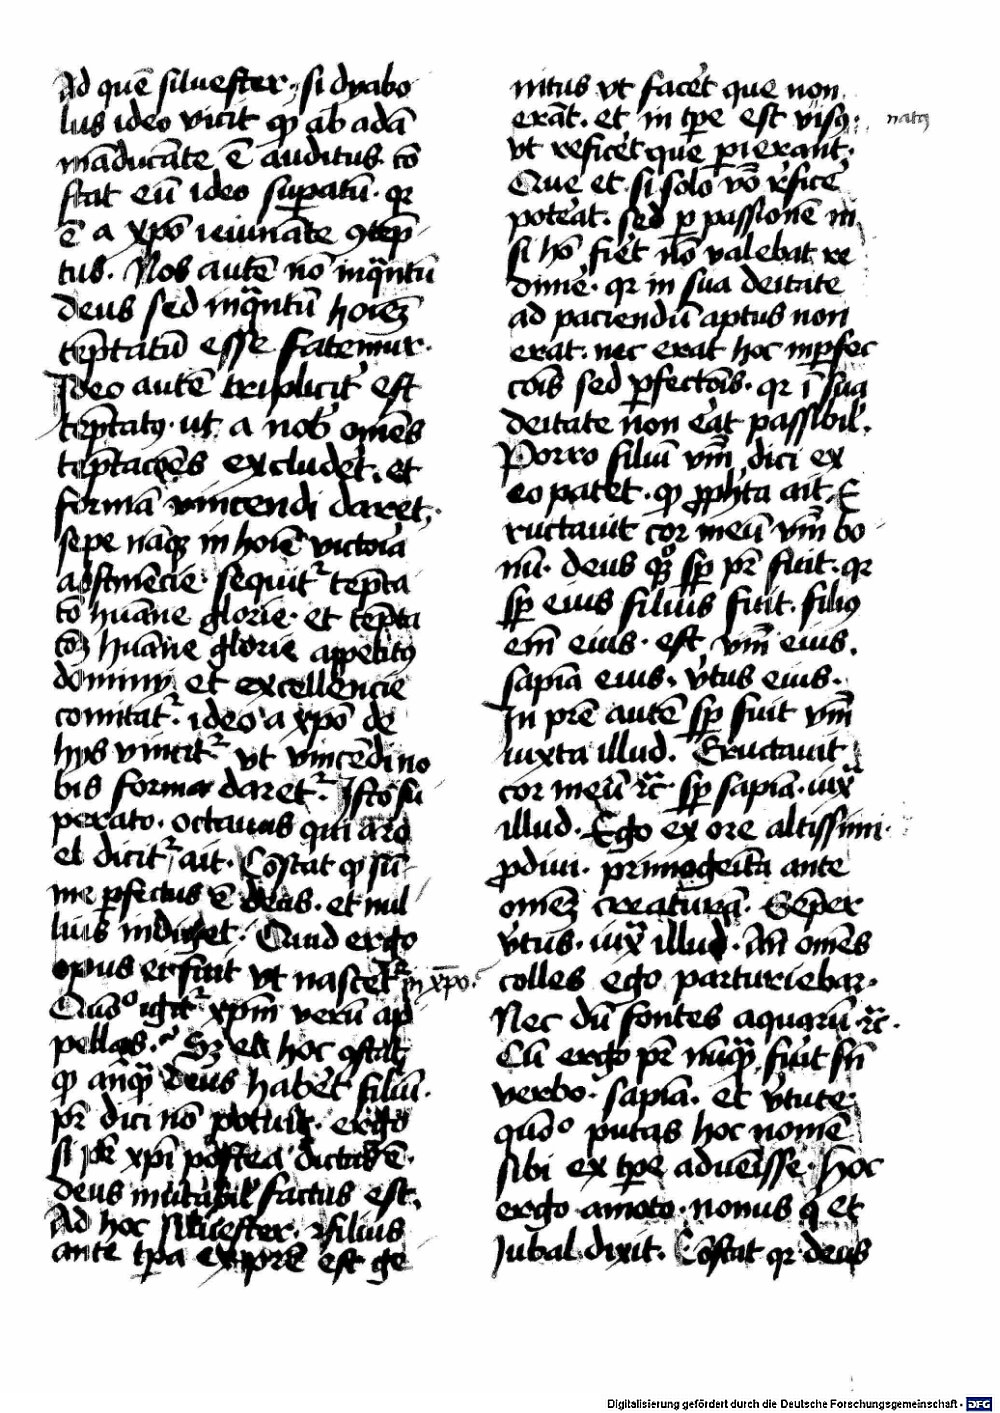 Ad quē siluester · si dyabo
lus ideo vicit ꝙ ab adā
māducāte ē auditus cō
stat eū ideo suꝑatū · qꝛ
ē a xp̄o ieiunāte ꝯtēp
tus · Nos autē nō inqͣntū
deus sed inqͣntū hoīeꝫ
tēptatū esse fatemur ·
Ideo autē triplicit᷑ est
tēptatꝯ · ut a nob̄ om̄es
tēptacōēs excludet · et
formā vincendi daret ·
sepe nāqꝫ in hoīe victoīa
abstinēcie · sequit᷑ tēpta
tō hūane glorie · et tēpta
tōꝫ hūane glorie appetitꝯ
dominij et excellēcie
comitat᷑ · ideo a xp̄o de
hijs vincit᷑ vt vincēdi no
bis forma daret᷑ · Isto su
perato · octauus qui aro
el dicit᷑ ait · Cōstat ꝙ sū
me ꝑfectus ē deus · et nul
luis indiget · Quid ergo
opus ei fuit vt nascet᷑ in xp̄o ·
Quō igit᷑ xp̄m verū ap
pellas · Sꝫ et hoc ꝯstat
ꝙ anqͣ deus habet filiū ·
pr̄ dici nō potuit · ergo
si pr̄ xp̄i postea dictus ē ·
deus mutabil᷑ factus est ·
Ad hoc siluester · filius
ante tꝑa ex pr̄e est ge
nitus vt facet que non
erāt · et in tꝑe est visꝯ · natꝯ
vt reficet que ꝑierant ·
Que et si solo v̄bo reficē
poteat · sed ꝑ passionē ni
si hō fiet nō valebat re
dimē · qꝛ in sua deitate
ad paciendū aptus non
erat · nec erat hoc imꝑfec
cōis sed ꝑfectōis · qꝛ ī sua
deitate non eāt passibil᷑ ·
Porro filiū v̄m dici ex
eo patet · ꝙ ꝓph̄ta ait · E
ructauit cor meū v̄m bo
nū · deus qͦꝫ sp̄ pr̄ fuit · qꝛ
sp̄ eius filius fuit · filiꝯ
em̄ eius · est v̄m eius ·
sapīa eius · v̄tus eius ·
In pr̄e autē sp̄ fuit v̄m
iuxta illud · Eructauit
cor meū ꝛc̄ · sp̄ sapīa · iux̄
illud · Ego ex ore altissimi
ꝓdiui · primogeīta ante
om̄eꝫ creaturā · Sēper
v̄tus · iux̄ illud · An̄ om̄es
colles ego parturiebar ·
Nec dū fontes aquarū ꝛc̄ ·
Cū ergo pr̄ nūqͣ fuit sn̄
verbo · sapīa · et v̄tute ·
quōdo putas hoc nomē
sibi ex tꝑe aduēisse · Hoc
ergo amoto · nonus q et
Jubal dixit · Cōstat qꝛ deus
Digitalisierung gefördert durch die Deutsche Forschungsgemeinschaft · DFG